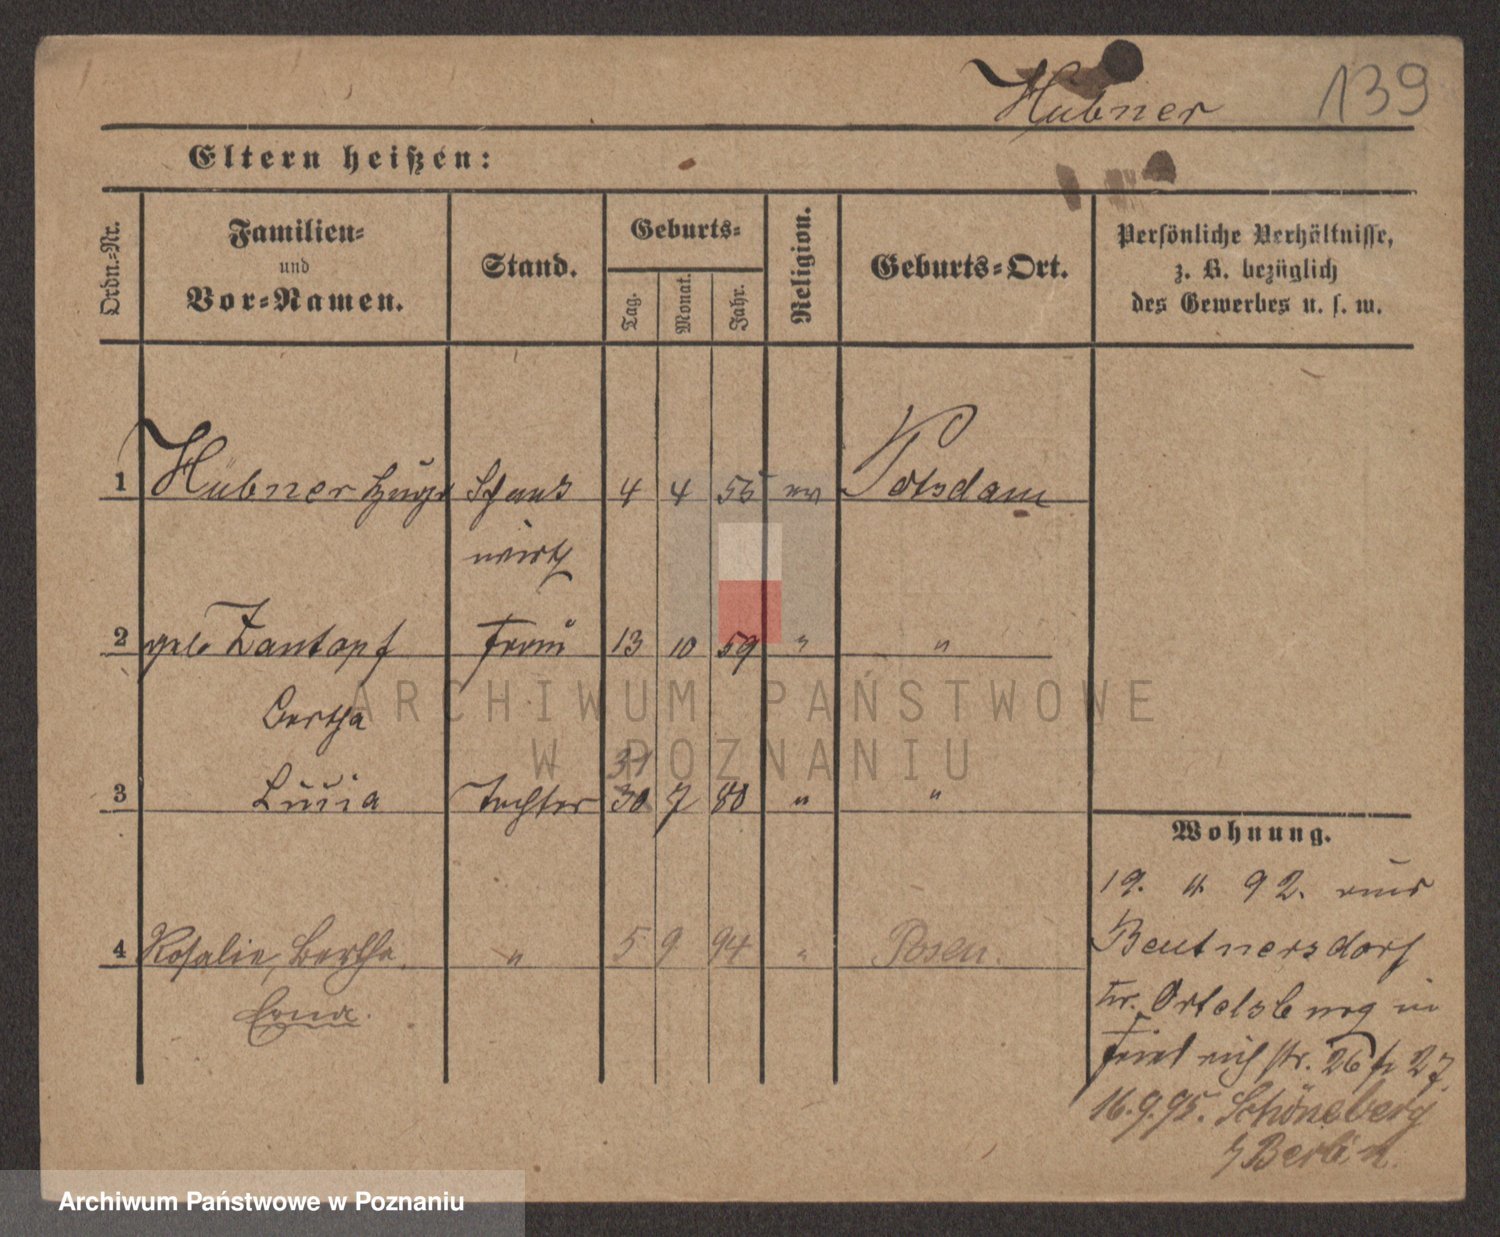 Hübner 139
Eltern heißen:
Ordn.-Nr.
Familien-
und
Vor-Namen.
Stand.
Geburts-
Tag.
Monat.
Jahr.
Religion.
Geburts-Ort.
Persönliche Verhältnisse,
z. B. bezüglich
des Gewerbes u. s. w.
1 Hübner Hugo Schank 4 4 55 ev Potsdam
wirth
2 geb Zantopf Frau 13 10 59 " "
Bertha
31
3 Tochter 30 7 80 " "
4 Rosalie, Bertha " 5 9 94 " Posen.
Erna.
Wohnung.
19. 4. 92. aus
Beutnersdorf
Kr. Ortelsburg in
str. 26 27
16.9.95. Schöneberg
Berlin.
ARCHIWUM PAŃSTWOWE
W POZNANIU
Archiwum Państwowe w Poznaniu